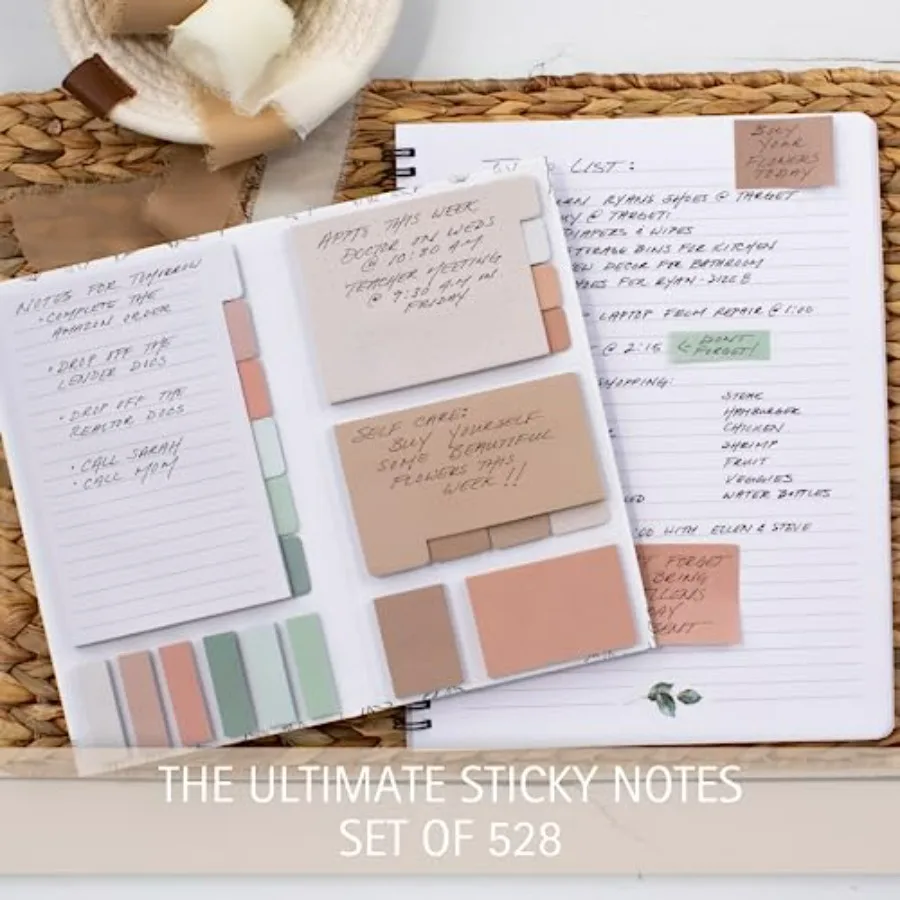 NOTES FOR TOMORROW
• COMPLETE THE
AMAZON ORDER
• DROP OFF THE
LENDER DOCS
• DROP OFF THE
REALTOR DOCS
• CALL SARAH
• CALL MOM
APPTS THIS WEEK
DOCTOR ON WEDS
@ 10:30 AM
TEACHER MEETING
@ 9:30 A.M. ON
FRIDAY
SELF CARE:
BUY YOURSELF
SOME BEAUTIFUL
FLOWERS THIS
WEEK!!
LIST:
BUY
YOUR
FLOWERS
TODAY
RYANS SHOES @ TARGET
@ TARGET!
DIAPERS & WIPES
STORAGE BINS FOR KITCHEN
DECOR FOR BATHROOM
FOR RYAN - SIZE 8
LAPTOP FROM REPAIR @ 1:00
@ 2:15
← DON'T
FORGET!
SHOPPING:
STEAK
HAMBURGER
CHICKEN
SHRIMP
FRUIT
VEGGIES
WATER BOTTLES
WITH ELLEN & STEVE
FORGET
BRING
ELLENS
THE ULTIMATE STICKY NOTES
SET OF 528